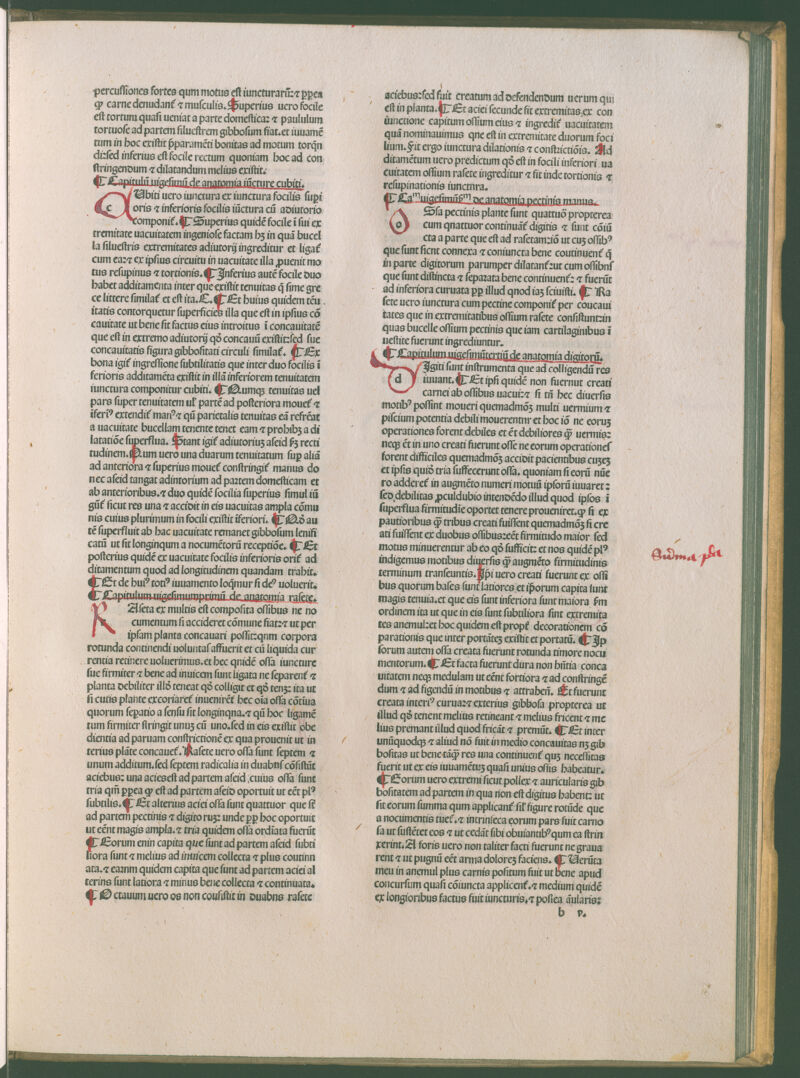 percussiones fortes qum motus est iuncturarū:⁊ ꝓpea
ꝙ carne denudant ⁊ musculis. ¶Superius uero focile
est tortum quasi ueniat a parte domestica: ⁊ paululum
tortuose ad partem siluestrem gibbosum fiat. et iuuamē
tum in hoc existit p̄parameñti bonitas ad motum torqn
di: sed inferius est focile rectum quoniam hoc ad con
stringendum ⁊ dilatandum melius existit.
¶ Capitulū uigesimū de anatomia iūcture cubiti.
c Ubiti uero iunctura ex iunctura focilis supi
oris ⁊ inferioris focilis iūctura cū adiutorio
componit. ¶Superius quidē focile ī sui ex
tremitate uacuitatem ingeniose factam hꝫ in quā bucel
la siluestris extremitates adiutorij ingreditur et ligat
cum ea:⁊ ex ipsius circuitu in uacuitate illa ꝓuenit mo
tus resupinus ⁊ tortionis. ¶Inferius autē focile duo
habet additamenta inter que existit tenuitas q̄ sime gre
ce littere similat et est ita. C. ¶Et huius quidem tēu
itatis conторquetur superficies illa que est in ipsius cō
cauitate ut bene sit factus eius introitus ī concauitatē
que est in extremo adiutorij qō concauū existit: sed sue
concauitatis figura gibbositati circuli similat. ¶Ex
bona igit ingressione subtilitatis que inter duo focilis ī
ferioris additamēta existit in illā inferiorem tenuitatem
iunctura componitur cubiti. ¶Cumqꝫ tenuitas uel
pars super tenuitatem ul' partē ad posteriora mouet ⁊
a uacuitate bucellam tenente tenet eam ⁊ prohibꝫ a di
latatiōe superflua. Stant igit adiutorius aseid sꝫ recti
tudinem. Cum uero una duarum tenuitatum sup aliā
ad anteriora ⁊ superius mouet constringit manus do
nec aseid tangat adiutorium ad partem domesticam et
ab anterioribus. ⁊ duo quidē focilia superius simul iū
gūt sicut res una ⁊ accidit in eis uacuitas ampla cōmu
nis cuius plurimum in focili existit īferiori. ¶Qō au
tē superfluit ab hac uacuitate remanet gibbosum lenifi
catū ut sit longinqum a nocumētorū receptiōe. ¶Et
posterius quidē ex uacuitate focilis inferioris orit ad
ditamentum quod ad longitudinem quandam trahit.
¶Et de hui⁹ tot⁹ iuuamento loq̄mur si de⁹ uoluerit.
¶Capitulum uigesimumprimū de anatomia rasete.
R Aseta ex multis est composita ossibus ne no
cumentum si acciderit cōmune fiat:⁊ ut per
ipsam planta concauari possit: qnm corpora
rotunda continendi uoluntas affuerit et cū liquida cur
rentia retinere uoluerimus. et hec qnidē ossa iuncture
sue firmiter ⁊ bene ad inuicem sunt ligata ne separent ⁊
planta debiliter illō teneat qō colligit et qō tenꝫ: ita ut
si cutis plante excoriaret inueniret hec oia ossa cōtiua
quorum sepatio a sensu sit longinqna. ⁊ qū hoc ligamē
tum firmiter stringit unuꝫ cū uno. sed in eis existit obe
dientia ad paruam constrictionē ex qua prouenit ut in
terius plāte concauet. ¶Rasete uero ossa sunt septem ⁊
unum additum. sed septem radicalia in duabus cōsistūt
aciebus: una acies est ad partem aseid. cuius ossa sunt
tria qm ꝓpea ꝙ est ad partem aseid oportuit ut eēt pl⁹
subtilis. ¶Et alterius aciei ossa sunt quattuor que st̄
ad partem pectinis ⁊ digitoruꝫ: unde pp hoc oportuit
ut eent magis ampla. ⁊ tria quidem ossa ordiata fuerūt
¶Eorum enin capita que sunt ad partem aseid subti
liora sunt ⁊ melius ad inuicem collecta ⁊ plus coutinn
ata. ⁊ earum quidem capita que sunt ad partem aciei al
terius sunt latiora ⁊ minus bene collecta ⁊ continuata.
¶Octauum uero os non consistit in duabus rasete
aciebus: sed fuit creatum ad defendendum neruum qui
est in planta. ¶Et aciei secunde fit extremitas ex con
iunctione capitum ossium eius ⁊ ingredit uacuitatem
quā nominauimus que est in extremitate duorum foci
lium. Fit ergo iunctura dilationis ⁊ constrictiōis. Ad
ditamētum uero predictum qō est in focili inferiori ua
cuitatem ossium rasete ingreditur ⁊ fit inde tortionis ⁊
resupinationis iunctura.
¶Caᵐ uigesimūsᵐ de anatomia pectinis manus.
o Ssa pectinis plante sunt quattuor propterea
cum quattuor continuant digitis ⁊ sunt cōiū
cta a parte que est ad rasetam: iō ut cuꝫ ossib⁹
que sunt sicut connexa ⁊ coniuncta bene continuent q̄
in parte digitorum parumper dilatant: ut cum ossibus
que sunt distincta ⁊ separata bene continuent: ⁊ fuerūt
ad inferiora curuata pp illud qnod iaꝫ sciuisti. ¶Ra
sete uero iunctura cum pectine componit per concaui
tates que in extremitatibus ossium rasete consistunt: in
quas bucelle ossium pectinis que iam cartilaginibus ī
uestite fuerunt ingrediuntur.
¶Capitulum uigesimūtertiū de anatomia digitorū.
d Igiti sunt instrumenta que ad colligendū res
iuuant. ¶Et ipsi quidē non fuerunt creati
carnei ab ossibus uacui:⁊ si tn̄ hec diuersis
motib⁹ possint moueri quemadmoꝫ multi uermium ⁊
piscium potentia debili mouerentur et hoc iō ne eoruꝫ
operationes forent debiles et ēt debiliores ꝙ uermis:
neqꝫ ēt in uno creati fuerunt osse ne eorum operationes
forent difficiles quemadmoꝫ accidit pacientibus cuzez
et ipsis quid tria suffecerunt ossa. quoniam si eorū nūe
ro adderet in augmēto numeri motuū ipsorū iuuaret:
sed debilitas ꝓculdubio intendēdo illud quod ipsos ī
superflua firmitudie oportet tenere proueniret. ꝙ si ex
pautioribus ꝙ tribus creati fuissent quemadmoꝫ si cre
ati fuissent ex duobus ossibus: eēt firmitudo maior sed
motus minuerentur ab eo qō sufficit: et nos quidē pl⁹
indigemus motibus diuersis ꝙ augmēto firmitudinis
terminum transeuntis. Ipi uero creati fuerunt ex ossi
bus quorum bases sunt latiores et iporum capita sunt
magis tenuia. et que eis sunt inferiora sunt maiora sm
ordinem ita ut que in eis sunt subtiliora sint extremita
tes anemul: et hoc quidem est propt decorationem cō
parationis que inter portātes existit et portatū. ¶Ip
sorum autem ossa creata fuerunt rotunda timore nocu
mentorum. ¶Et facta fuerunt dura non hntia conca
uitatem neqꝫ medulam ut eent fortiora ⁊ ad constringē
dum ⁊ ad figendū in motibus ⁊ attrahen. Et fuerunt
creata interi⁹ curua:⁊ exterius gibbosa propterea ut
illud qō tenent melius retineant ⁊ melius fricent ⁊ me
lius premant illud quod fricāt ⁊ premūt. ¶Et inter
unūquodqꝫ ⁊ aliud nō fuit in medio concauitas nꝫ gib
bositas ut bene tāꝙ res una continuent quꝫ necessitas
fuerit ut ex eis iuuamētuꝫ quasi unius ossis habeatur.
¶Eorum uero extremi sicut pollex ⁊ auricularis gib
bositatem ad partem in qua non est digitus habent: ut
sit eorum summa qum applicant sil' figure rotūde que
a nocumentis tuet. ⁊ intrinseca eorum pars fuit carno
sa ut sustētet eos ⁊ ut cedāt sibi obuiantib⁹ qum ea strin
xerint. A foris uero non taliter facti fuerunt ne graua
rent ⁊ ut pugnū eēt arma dolorez faciens. ¶Uerūta
meu in anemul plus carnis positum fuit ut bene apud
concursum quasi cōiuncta applicent. ⁊ medium quidē
ex longioribus factus fuit iuncturis. ⁊ postea āularis:
b p.